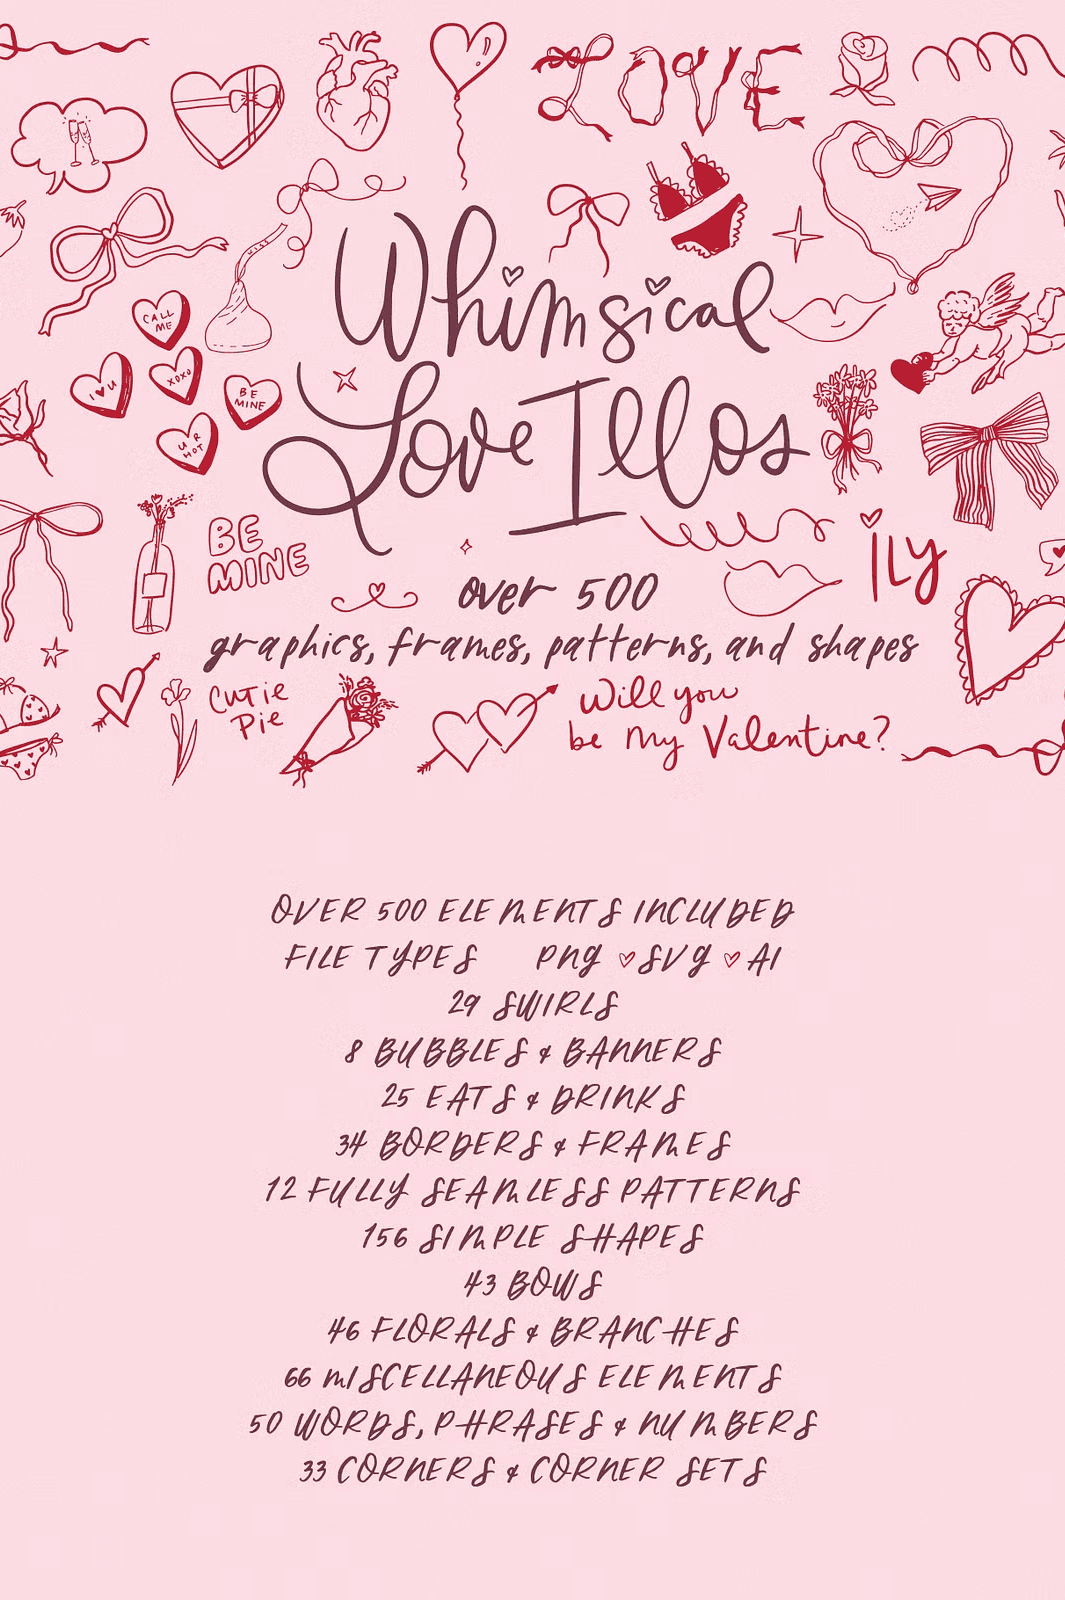 LOVE
CALL
ME
I ♥ U
XOXO
BE
MINE
U R
HOT
Whimsical
Love Illos
BE
MINE
ily
over 500
graphics, frames, patterns, and shapes
CUTiE
PiE
Will you
be my Valentine?
OVER 500 ELEMENTS INCLUDED
FILE TYPES PNG ♡ SVG ♡ AI
29 SWIRLS
8 BUBBLES & BANNERS
25 EATS & DRINKS
34 BORDERS & FRAMES
12 FULLY SEAMLESS PATTERNS
156 SIMPLE SHAPES
43 BOWS
46 FLORALS & BRANCHES
66 MISCELLANEOUS ELEMENTS
50 WORDS, PHRASES & NUMBERS
33 CORNERS & CORNER SETS